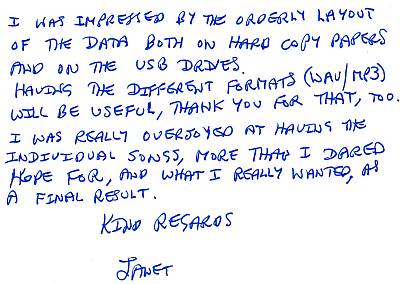 I WAS IMPRESSED BY THE ORDERLY LAYOUT
OF THE DATA BOTH ON HARD COPY PAPERS
AND ON THE USB DRIVES.
HAVING THE DIFFERENT FORMATS (WAV/MP3)
WILL BE USEFUL, THANK YOU FOR THAT, TOO.
I WAS REALLY OVERJOYED AT HAVING THE
INDIVIDUAL SONGS, MORE THAN I DARED
HOPE FOR, AND WHAT I REALLY WANTED, AS
A FINAL RESULT.
KIND REGARDS
JANET